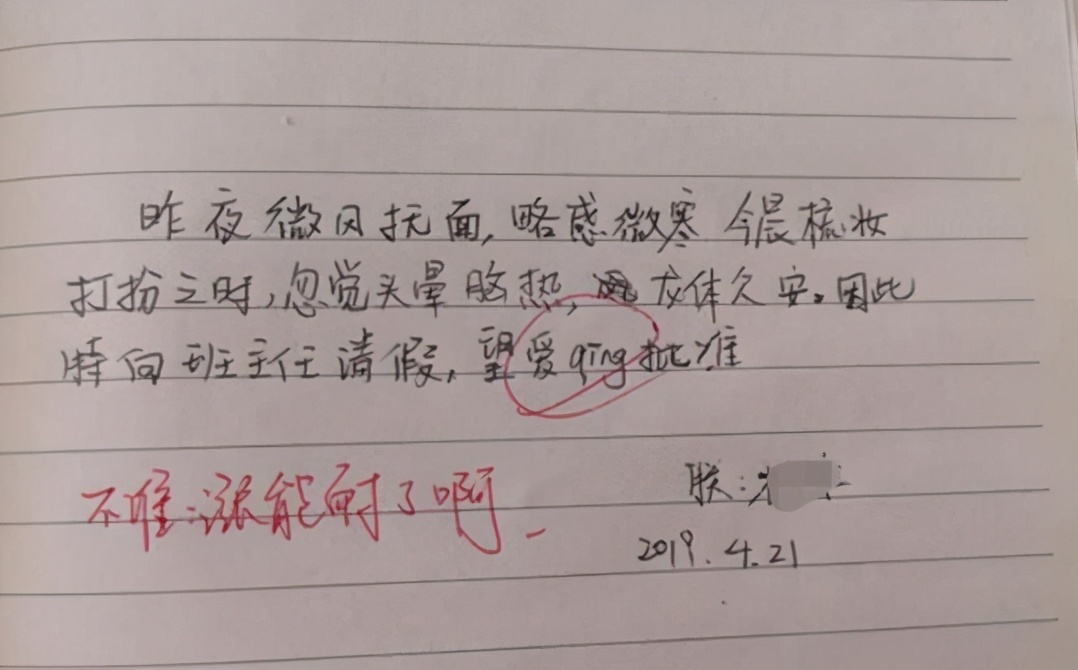 昨夜微风抚面,略感微寒 今晨梳妆
打扮之时,忽觉头晕脑热, 龙体久安。因此
特向班主任请假,望爱qing批准
不准:涨能耐了啊
朕:
2019.4.21